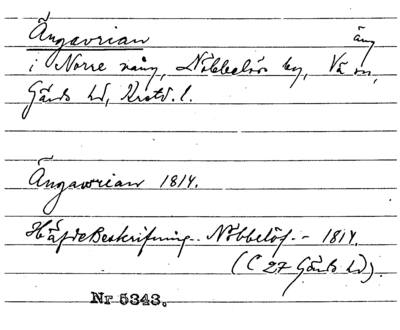 Ängavrian äng
i Norre vång, Nöbbelövs by, Vä sn,
Gärds hd, Krstd. l.
Ängawrian 1814.
HäfdeBeskrifning.. Nöbbelöf.- 1814.
(C 27 Gärds hd).
Nr 5343.